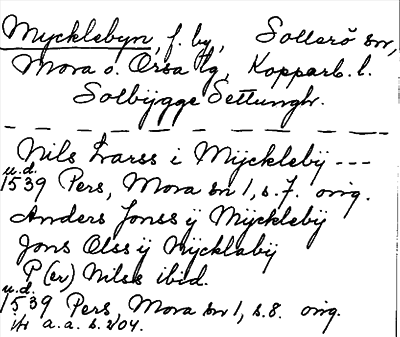 Mycklebyn, f. by, Sollerö sn,
Mora o. Orsa tg, Kopparb. l.
Solbÿgge Settungh.
Nils Larss i Mÿcklebÿ ---
u.d.
1539 Pers, Mora sn 1, s. 7. orig.
Anders Jonss ÿ Mÿcklebÿ
Jons Olss ÿ Mÿcklabÿ
P(er) Nilss ibid.
u.d.
1539 Pers Mora sn 1, s. 8. orig.
a.a. s. 204.